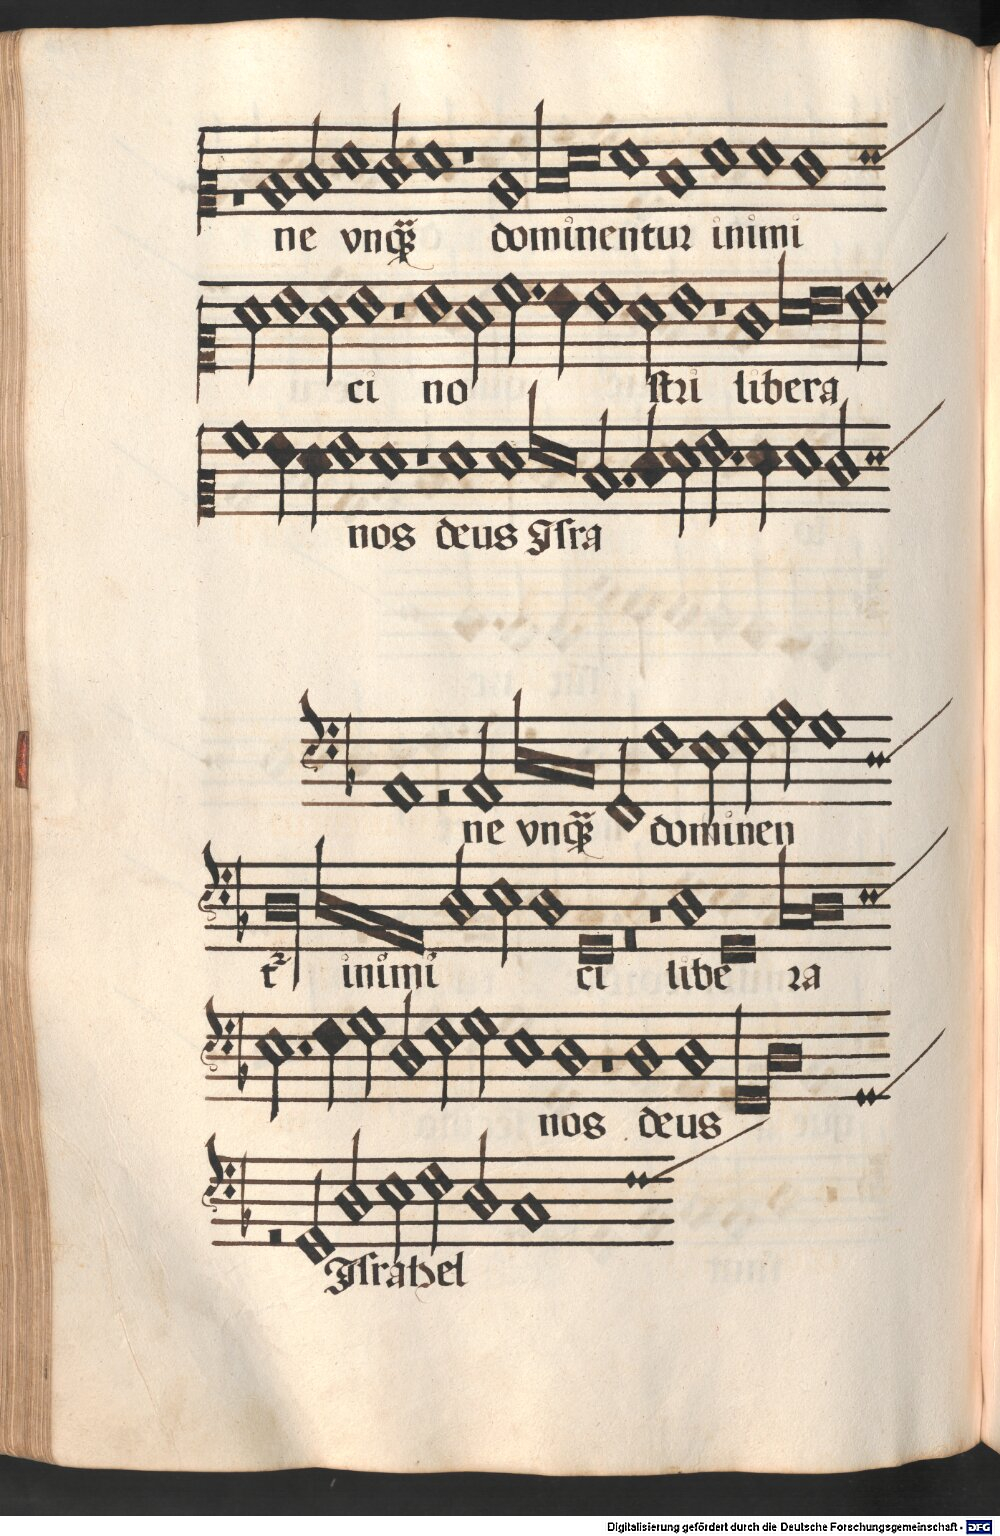 ne vnqͫ dominentur inimi
ci no stri libera
nos deus Israͣ
ne vnqͫ dominen
tᷣ inimi ci libe ra
nos deus
Israhel
Digitalisierung gefördert durch die Deutsche Forschungsgemeinschaft - DFG